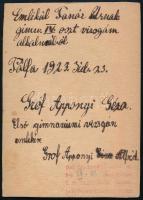 Emlékül Tanár úrnak
gimn. IV. oszt vizsgám
alkalmából
Pálfa 1923. júl. 23.
Gróf Apponyi Géza.
Első gimnaziumi vizsgám
emlékére
Gróf Apponyi Alfréd